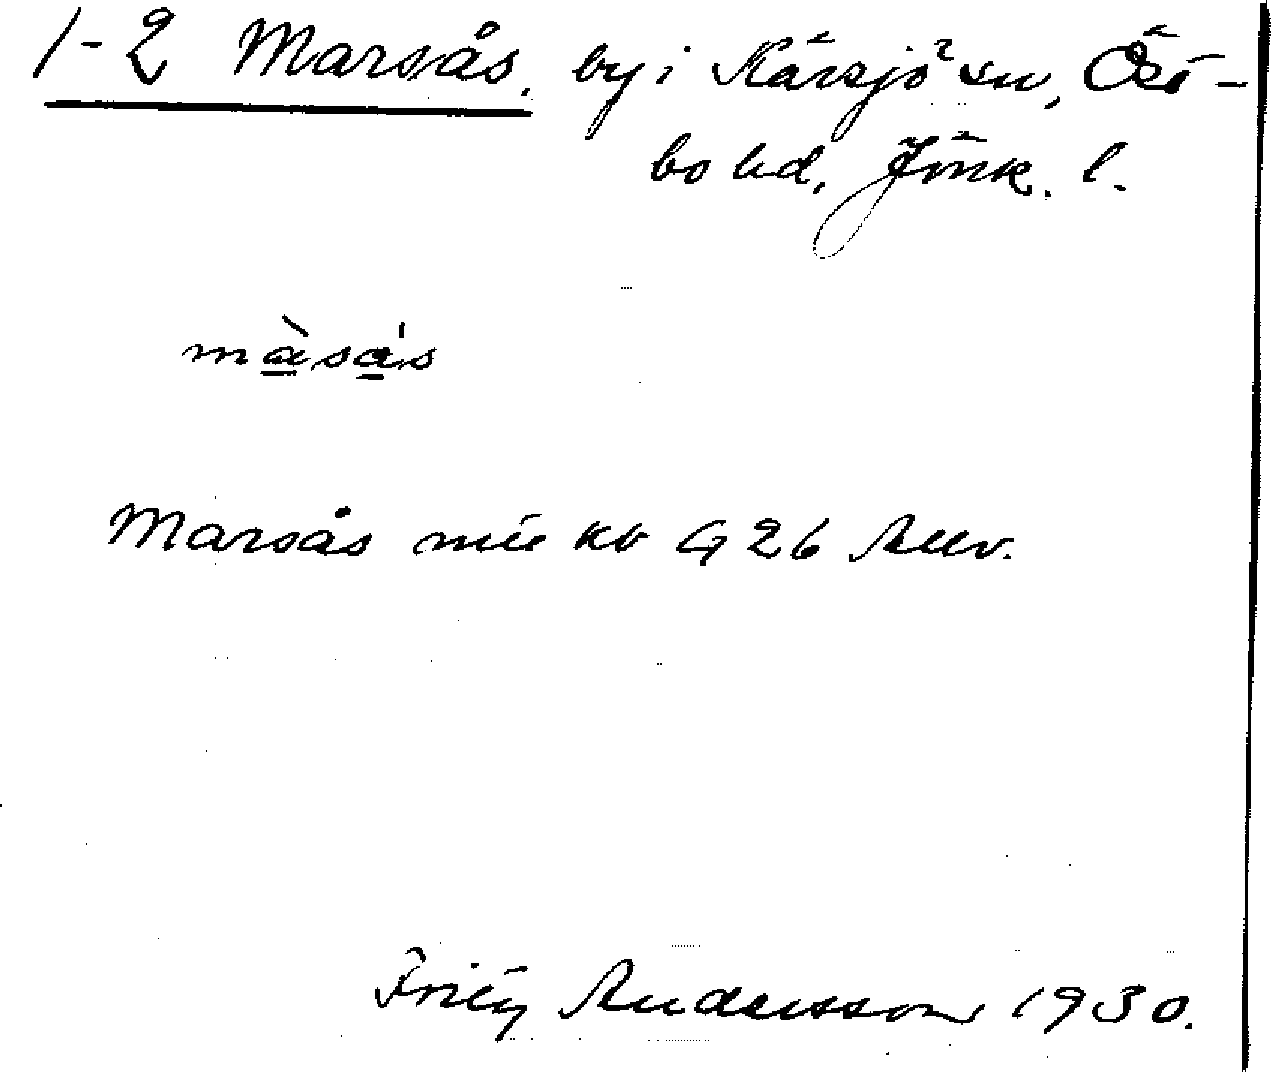 1-2 Marsås. by i Kärsjö sn, Öst-
bo hd, Jönk. l.
màsás
Marsås mtl kb G 26
Andersson 1930.